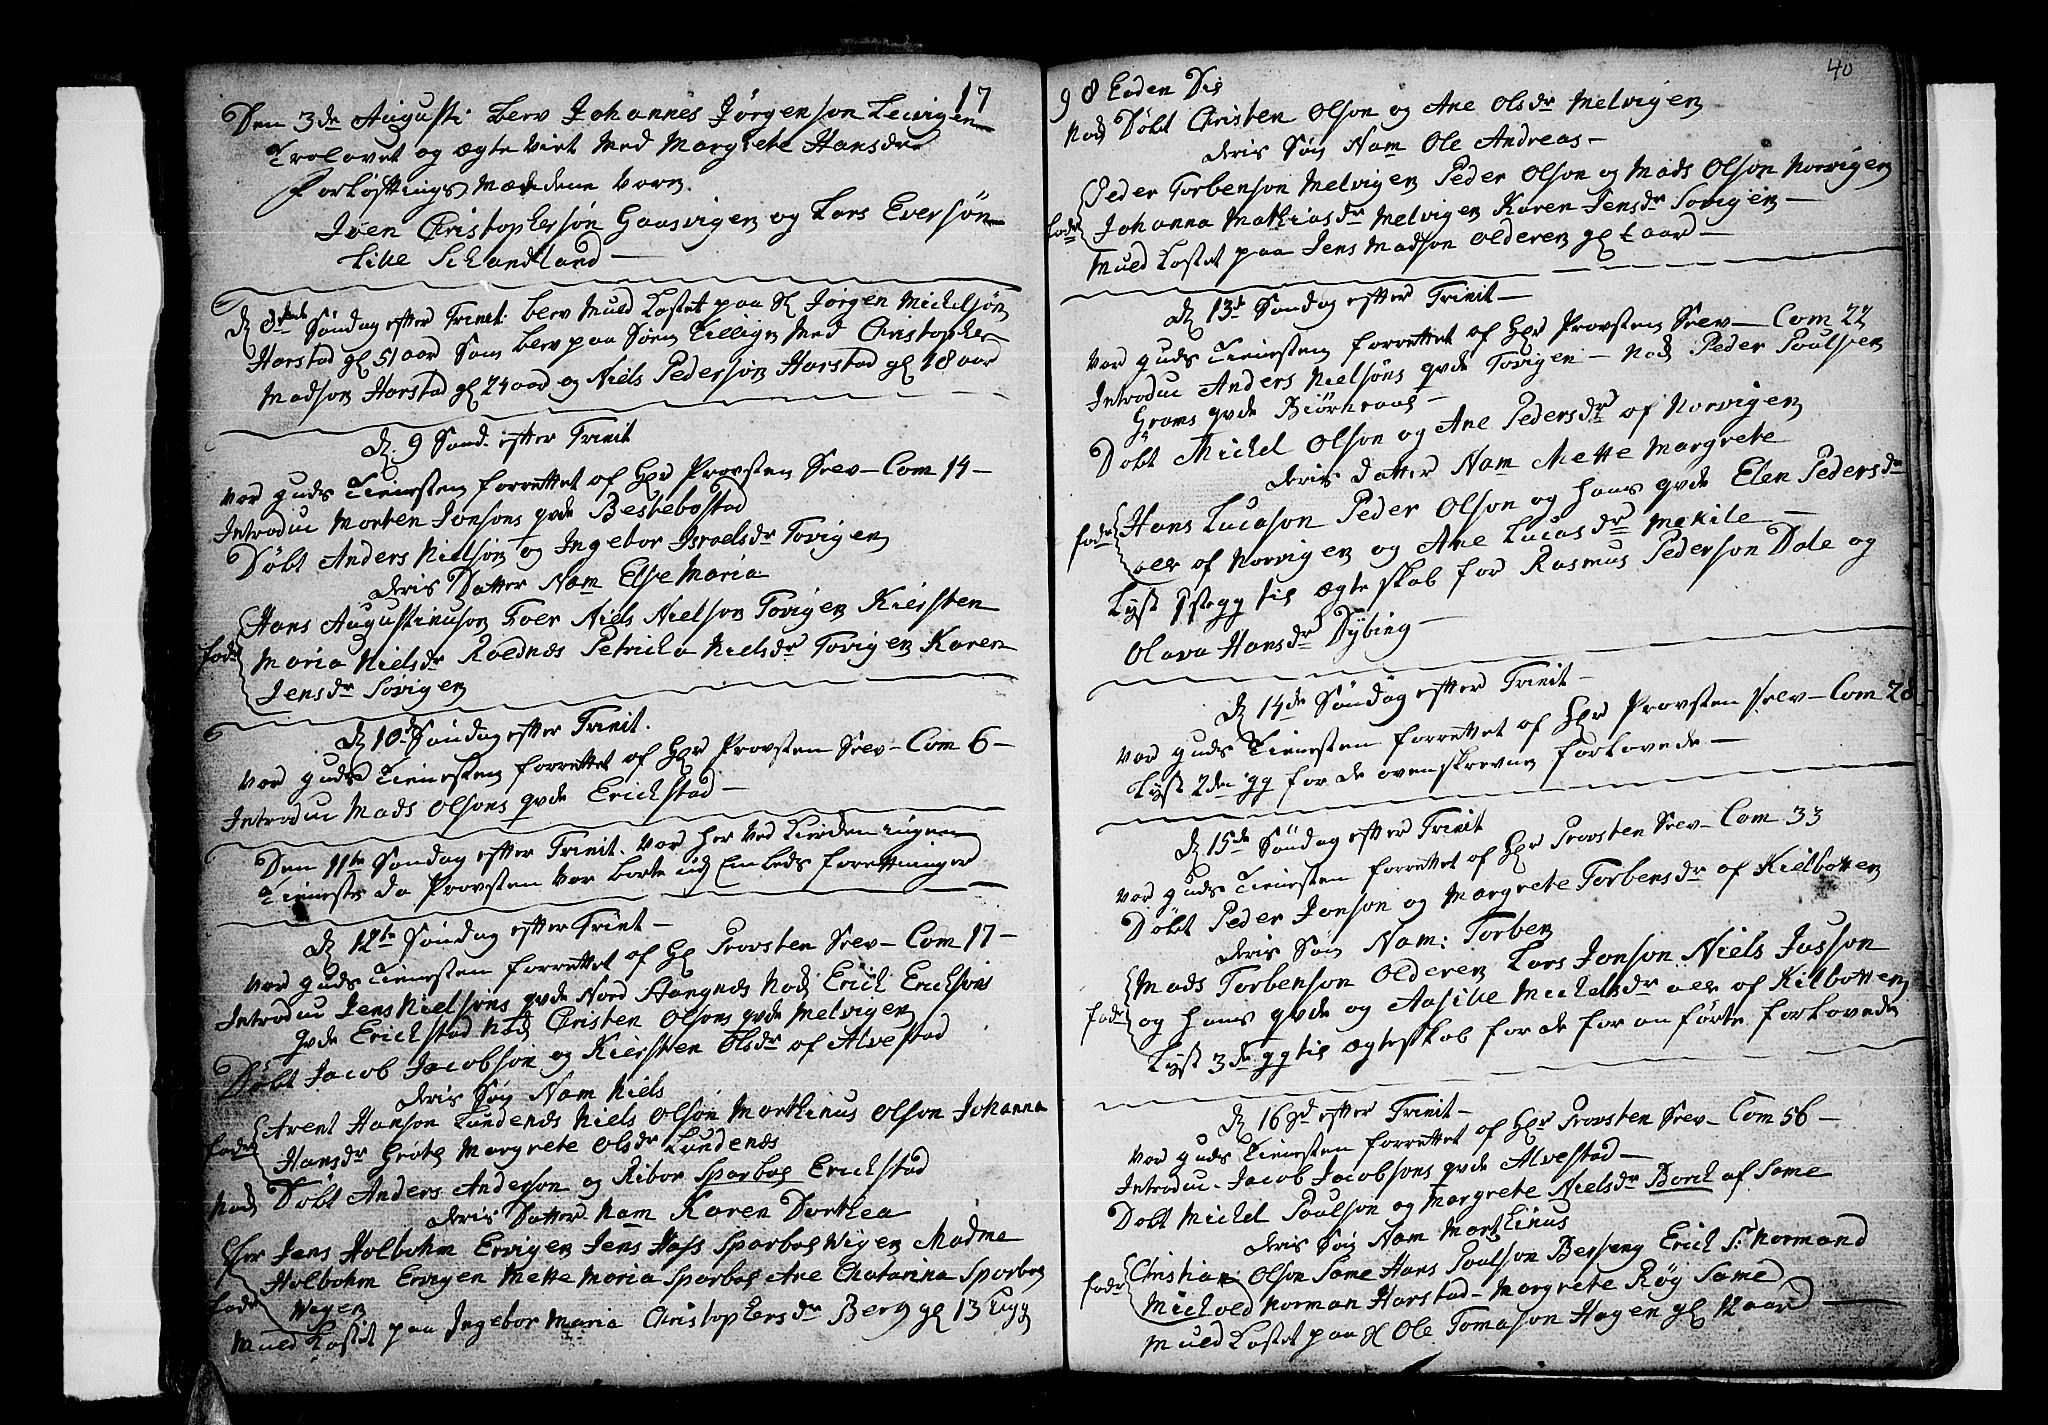 17
Den 3de Augusti blev Johannes Jørgenson Leivigen
Trolovet og ægte viet Med Margrete Hansdr
forløftings Mændene Vare.
Iven Christophersøn Gaasvigen og Lars Eversøn
Lille Schandland
D 8de Søndag efter Trinit: blev Muld Kastet paa Sl Jørgen Michelsøn
Harstad gl 51 aar Som blev paa Søen Tillige Med Christopher
Madson Harstad gl 24 aar og Niels Pedersøn Harstad gl 18 aar
D. 9 Sønd. efter Trinit
Vor guds Tienesten forrettet af Hr Provsten Srev - Com 14 -
Introduc Morten Jonsons qvde Bestebostad
Døbt Anders Nielsøn og Ingebor Israelsdr Tovigen
deris Datter Nam Else Maria
fadr Hans Augustinuson Foer Niels Nielson Tovigen Kiersten
Maria Nielsdr Roednæs Petricka Nielsdr Tovigen Karen
Jensdr Søvigen
D 10de Søndag efter Trinit.
Vor guds Tienesten forrettet af Hr Provsten Srev - Com 6 -
Introduc Mads Olsons qvde Erickstad -
Den 11te Søndag efter Trinit. Var her Ved Kierken ingen
Tieneste da Provsten Var borte udj Embeds forrettninger
D 12te Søndag efter Trinit -
Vor guds Tienesten forrettet af Hr Provsten Srev - Com 17 -
Introduc Jens Nielsøns qvde Nord Stangnes Nok Erick Ericksøns
qvde Erickstad Nok Christen Olsons qvde Melvigen
Døbt Jacob Jacobsøn og Kiersten Olsdr af Alvestad
deris Søn Nam Niels
fadr Arent Hanson Lundenes Niels Olsøn Marthinus Olson Johanna
Hansdr Grøtes Margrete Olsdr Lundenæs
Nok Døbt Anders Anderson og Ribor Sparboe Erickstad
deris Datter Nam Karen Dorthea
fadr Hr Jens Holbohm Ervigen Jens Hass Sparboe Vigen Madme
Holbohm Ervigen Mette Maria Sparboe Ane Chatarina Sparboe
Vigen
Muld Kastet paa Ingebor Maria Christophersdr Berg gl 13 Ugg
40
9 8 Eoden Die
Nok Døbt Christen Olson og Ane Olsdr Melvigen
deris Søn Nam Ole Andreas -
fadr Peder Torbenson Melvigen Peder Olson og Mads Olson Norvigen
Johanna Mathiasdr Melvigen Karen Jensdr Søvigen -
Muld Kastet paa Jens Madson Olderen gl aar -
D 13de Søndag efter Trinit -
Vor guds Tienesten forrettet af Hr Provsten Srev - Com 22
Introduc Anders Nielsøns qvde Tovigen - Nok Peder Poulsen
Grams qvde
Døbt Michel Olson og Ane Pedersdr af Norvigen
deris datter Nam Mette Margrete
fadr Hans Lucason Peder Olson og hans qvde Elen Pedersdr
alle af Norvigen og Ane Lucasdr Mekile -
Lyst 1ste gg til ægteskab for Rasmus Pederson Dale og
Olava Hansdr Dybing -
D 14de Søndag efter Trinit -
Vor guds Tienesten forrettet af Hr Provsten Srev - Com 28
Lyst 2den gg for de ovenskrevne forlovede -
D 15de Søndag efter Trinit
Vor guds Tienesten forrettet af Hr Provsten Srev - Com 33
Døbt Peder Jonson og Margrete Torbensdr af Kielbotten
deris Søn Nam: Torben
fadr Mads Torbenson Olderen Lars Jonson Niels Jasson
og hans qvde og Aasille Mickelsdr alle af Kilbotten
Lyst 3de gg til ægteskab for de for an førte forlovede
D 16 Sd efter Trinit -
Vor guds Tienesten forrettet af Hr Provsten Srev - Com 56 -
Introduc. Jacob Jacobsons qvde Alvestad -
Døbt Michel Poulson og Margrete Nielsdr Borch af Same
deris Søn Nam Marthinus
fadr Christian Olson Same Hans Poulson Berseng Erick Sr Normand
Norman Harstad - Margrete Røg Same
Muld Kastet paa Sl Ole Tomason Hagen gl 12 aar